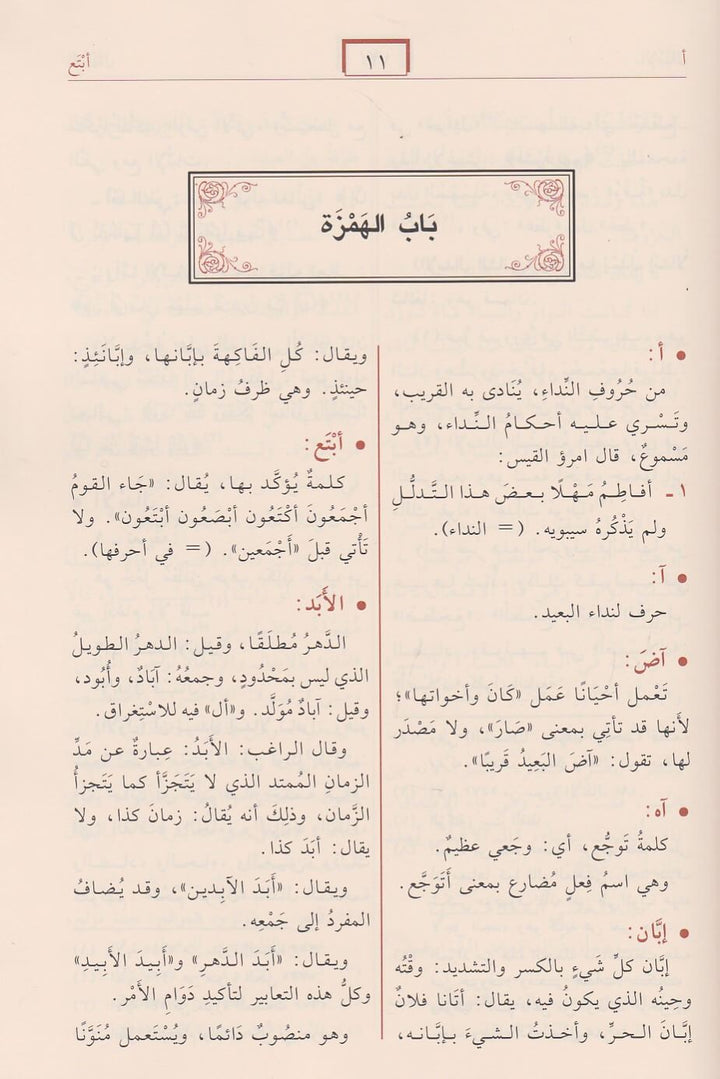 أ
١١
أبْتَع
بَابُ الهَمْزَة
• أ:
من حُرُوفِ النِّداءِ، يُنَادى به القريب،
وتَسْري عليه أحكامُ النِّداء، وهو
مَسْموعٌ، قال امرؤ القيس:
١ ـ أفاطِمُ مَهْلًا بعضَ هذا التَّدلُّلِ
ولم يَذْكُرهُ سيبويه. (= النداء).
• آ:
حرف لنداء البعيد.
• آضَ:
تَعْمل أحْيَانًا عَمَل «كَانَ وأخواتها»؛
لأنها قد تأتي بمعنى «صَارَ»، ولا مَصْدَر
لها، تقول: «آضَ البَعِيدُ قَريبًا».
• آه:
كلمةُ تَوجُّع، أي: وجَعي عظيمٌ.
وهي اسمُ فِعلٍ مُضارع بمعنى أَتَوَجَّع.
• إبَّان:
إبَّان كلِّ شَيءٍ بالكسر والتشديد: وقْتُه
وحِينُه الذي يكونُ فيه، يقال: أتَانا فلانٌ
إبَّانَ الحرِّ، وأخذتُ الشيءَ بإبَّانه،
ويقال: كُلِ الفَاكِهةَ بإبَّانها، وإبَّانَئِذٍ:
حينئذٍ. وهي ظرفُ زمانِ.
• أبْتَع:
كلمةٌ يُؤكَّد بها، يُقال: «جَاء القومُ
أجْمَعُونَ أكْتَعُون أبْصَعُون أبْتَعُون». ولا
تَأْتي قبلَ «أَجْمَعين». (= في أحرفها).
• الأَبَد:
الدَّهرُ مُطلَقًا، وقيل: الدهرُ الطويلُ
الذي ليس بمَحْدُودٍ، وجمعُهُ: آبَادٌ، وأُبُود،
وقيل: آبادٌ مُوَلَّد. و«أل» فيه للاسْتِغراق.
وقال الراغب: الأَبَدُ: عِبارةٌ عن مَدِّ
الزمانِ المُمتد الذي لا يَتَجَزَّأ كما يتَجزأُ
الزَّمان، وذلِكَ أنه يُقالُ: زمانَ كذا، ولا
يقال: أبَدَ كذا.
ويقال: «أَبَدَ الآبِدين»، وقد يُضافُ
المفردُ إلى جَمْعِه.
ويقال: «أَبَدَ الدَّهرِ» و«أَبِيدَ الأَبِيدِ»
وكلُّ هذه التعابير لتأكيدِ دَوَامِ الأَمْر.
وهو منصُوبٌ دَائمًا، ويُسْتَعمل مُنَوَّنًا